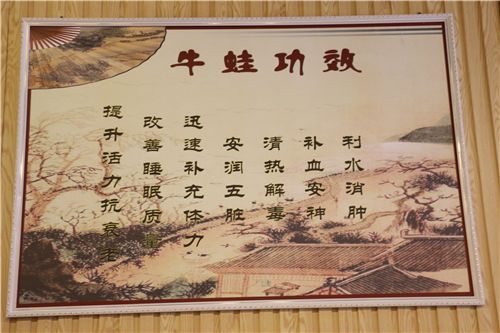 牛蛙功效
利水消肿
补血安神
清热解毒
安润五脏
迅速补充体力
改善睡眠质量
提升活力抗衰老